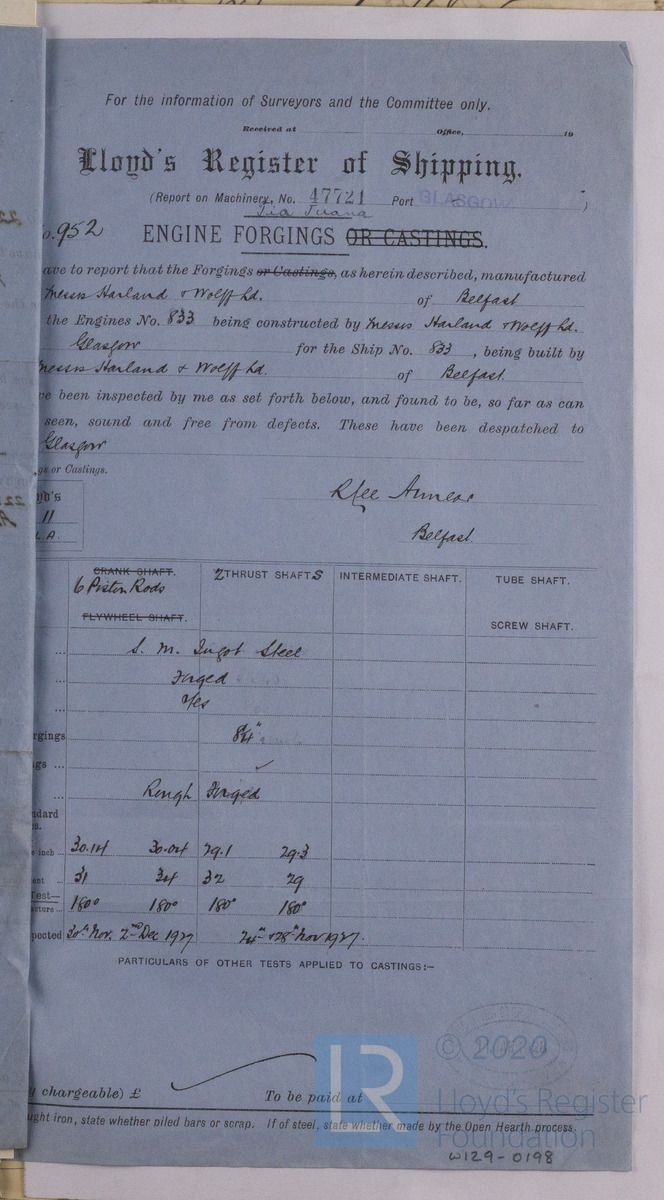 For the information of Surveyors and the Committee only.
Received at Office, 19
Lloyd's Register of Shipping.
(Report on Machinery, No. 47721 Port GLASGOW )
Tia Juana
o. 952 ENGINE FORGINGS OR CASTINGS.
ave to report that the Forgings or Castings, as herein described, manufactured
Messrs Harland & Wolff Ld. of Belfast
the Engines No. 833 being constructed by Messrs Harland & Wolff Ld.
Glasgow for the Ship No. 833, being built by
Messrs Harland & Wolff Ld. of Belfast
ve been inspected by me as set forth below, and found to be, so far as can
seen, sound and free from defects. These have been despatched to
Glasgow
gs or Castings.
yd's
11
L.A.
Belfast.
CRANK SHAFT. 2 THRUST SHAFTS INTERMEDIATE SHAFT. TUBE SHAFT.
6 Piston Rods
FLYWHEEL SHAFT. SCREW SHAFT.
... S. M. Ingot Steel
... Forged
... Yes
rgings
gs ... ✓
... Rough Forged
ndard
s.
e inch ... 30.14 30.04 29.1 29.3
ent ... 31 34 32 29
Test—
acture ... 180° 180° 180° 180°
pected 30th Nov. 2nd Dec 1927 24th & 28th Nov 1927.
PARTICULARS OF OTHER TESTS APPLIED TO CASTINGS:—
y chargeable) £ To be paid at
ught iron, state whether piled bars or scrap. If of steel, state whether made by the Open Hearth process.
© 2020
LR
Lloyd's Register
Foundation
W129-0198